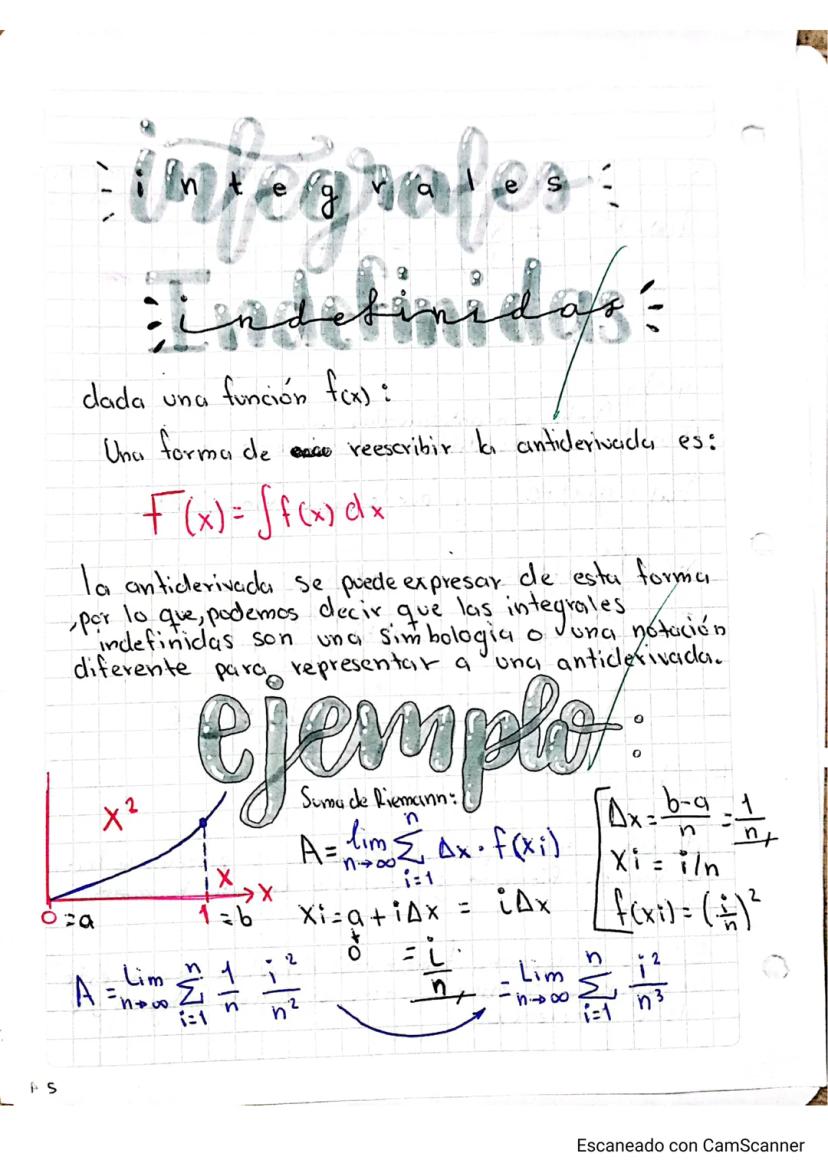 integrales
Indefinidas
dada una función f(x) :
Una forma de reescribir la antiderivada es:
F(x) = ∫ f(x) dx
la antiderivada se puede expresar de esta forma
, por lo que, podemos decir que las integrales
indefinidas son una simbología o una notación
diferente para representar a una antiderivada.
ejemplo:
x²
x
x
0 = a
1 = b
Suma de Riemann:
A = lim n→∞ Σ i=1 n Δx · f(xi)
xi = a + iΔx = iΔx
0
= i/n
Δx = b-a/n = 1/n
xi = i/n
f(xi) = (i/n)²
A = Lim n→∞ Σ i=1 n 1/n i²/n² = Lim n→∞ Σ i=1 n i²/n³
5
Escaneado con CamScanner